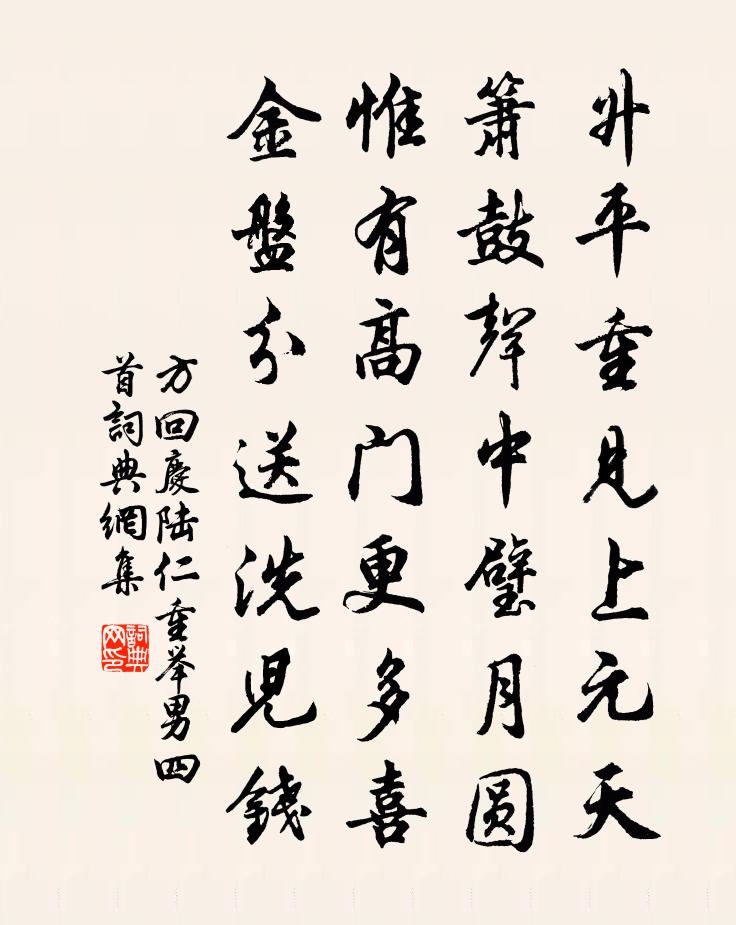 升平重見上元天
簫鼓聲中璧月圆
惟有高门更多喜
金盤分送洗児錢
方回慶陆仁重举男四
首詞典網集
詞典网印